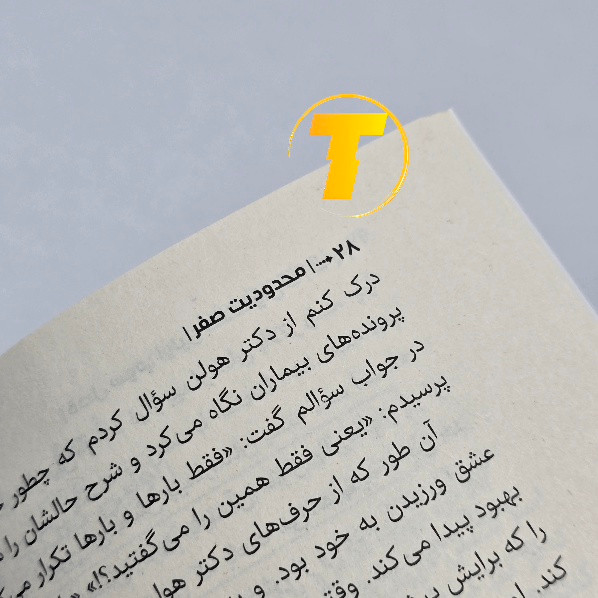 T
۲۸ | محدودیت صفر |
درک کنم از دکتر هولن سؤال کردم که چطور
پرونده‌های بیماران نگاه می‌کرد و شرح حالشان را
در جواب سؤالم گفت: «فقط بارها و بارها تکرار
پرسیدم: «یعنی فقط همین را می‌گفتید؟!»
آن طور که از حرف‌های دکتر
عشق ورزیدن به خود بود. و
بهبود پیدا می‌کند. وقتی
را که برایش
کند.